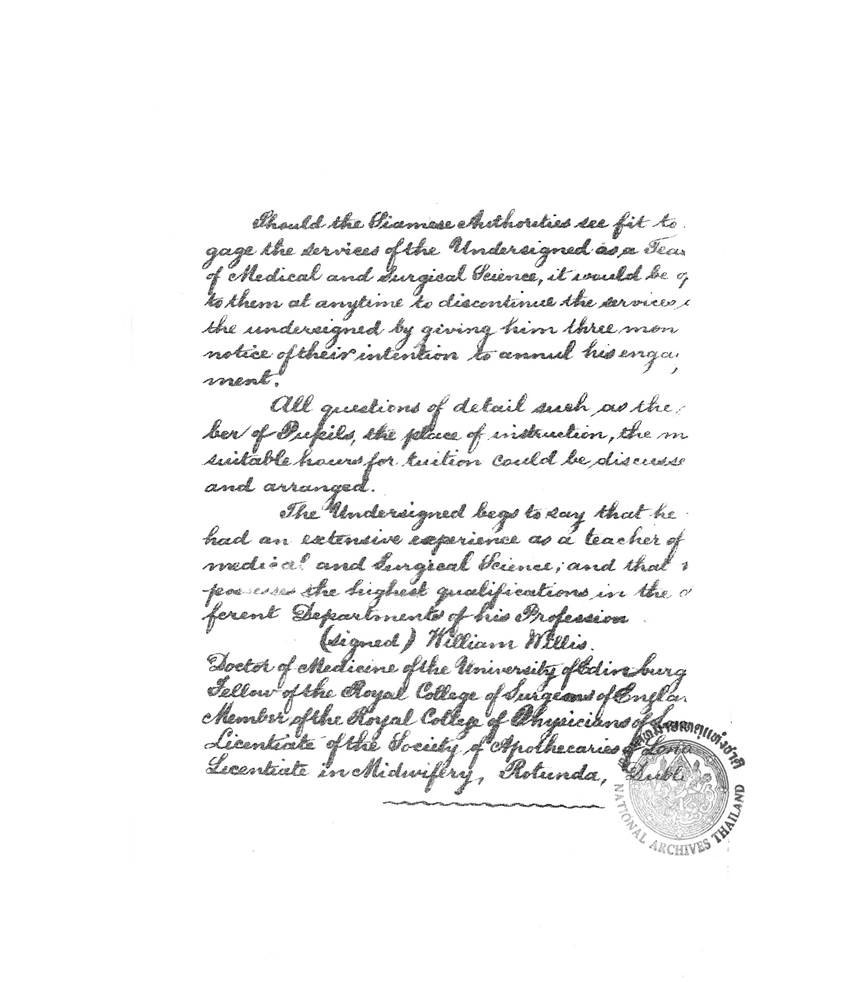 Should the Siamese Authorities see fit to
gage the services of the Undersigned as a Teac
of Medical and Surgical Science, it would be op
to them at anytime to discontinue the services
the undersigned by giving him three mon
notice of their intention to annul his enga
ment.
All questions of detail such as the
ber of Pupils, the place of instruction, the m
suitable hours for tuition could be discusse
and arranged.
The Undersigned begs to say that he
had an extensive experience as a teacher of
medical and Surgical Science; and that
possesses the highest qualifications in the
ferent Departments of his Profession
(signed) William Willis.
Doctor of Medicine of the University of Edinburg
Fellow of the Royal College of Surgeons of Englan
Member of the Royal College of Physicians of
Licentiate of the Society of Apothecaries Lon
Licentiate in Midwifery, Rotunda, Dubli
หอจดหมายเหตุแห่งชาติ
NATIONAL ARCHIVES THAILAND